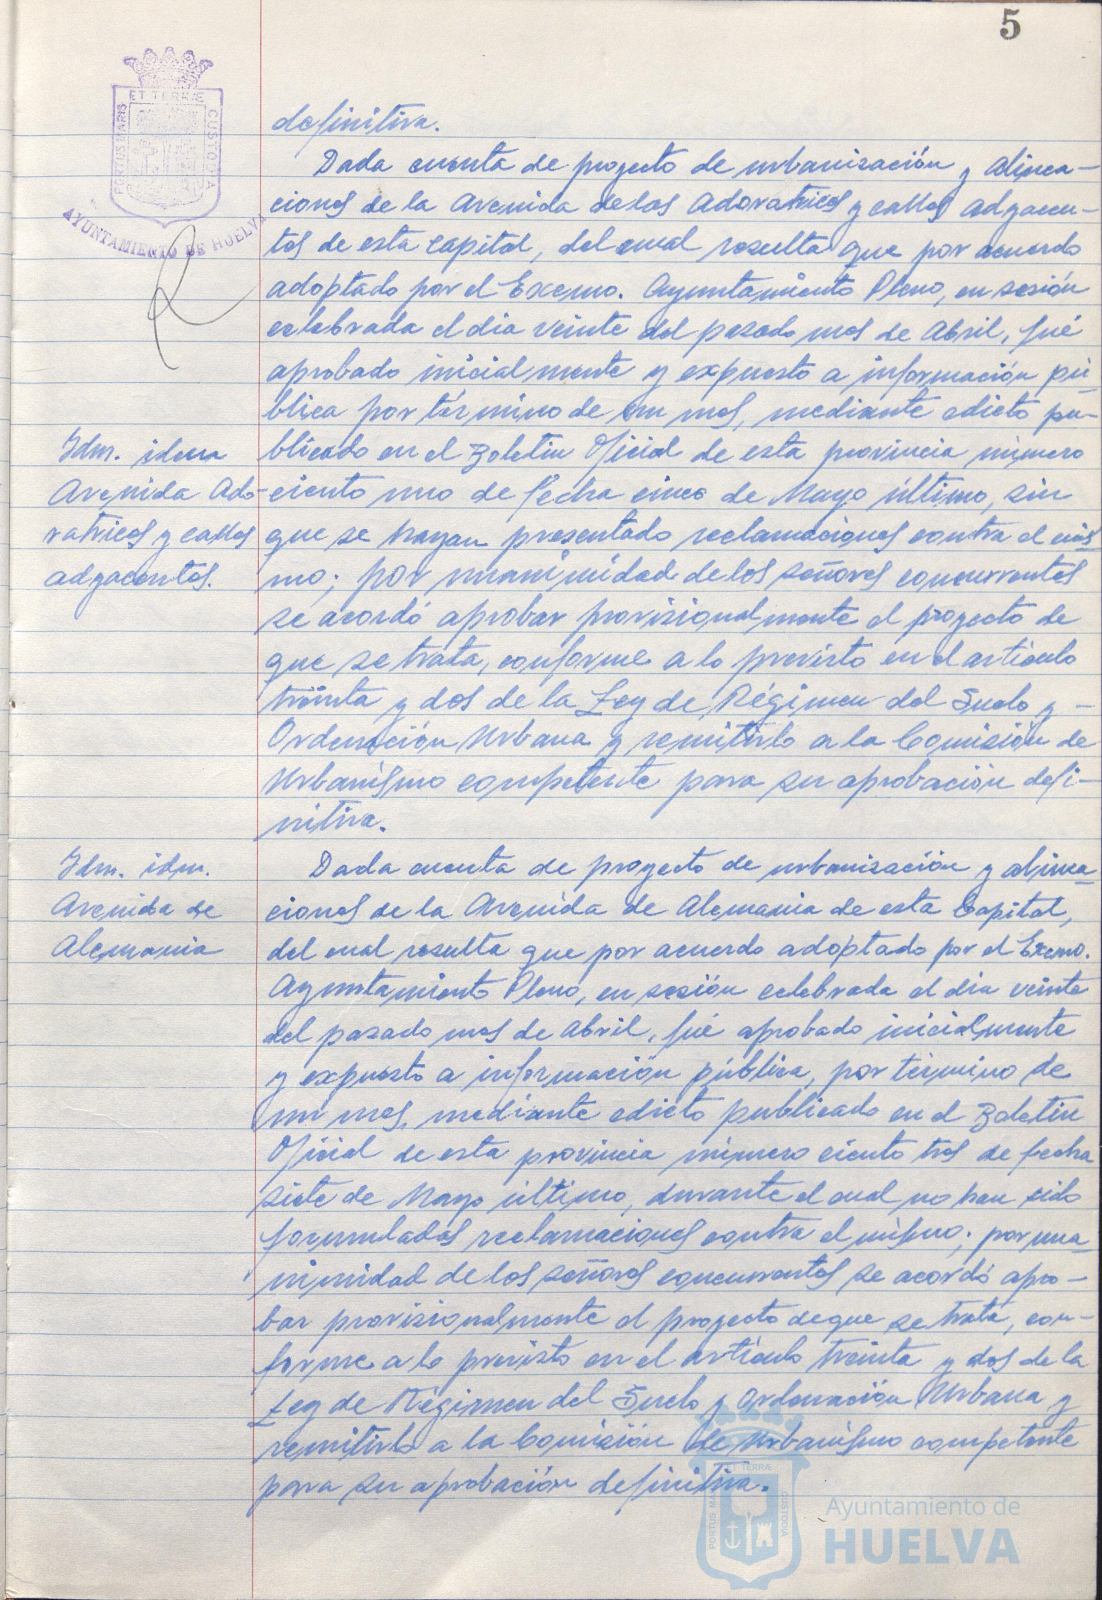 5
ET TERRÆ
PORTUS MARIS
CUSTODIA
AYUNTAMIENTO DE HUELVA
definitiva.
Dada cuenta de proyecto de urbanización y alinea-
ciones de la Avenida de las Adoratrices y calles adyacen-
tes de esta capital, del cual resulta que por acuerdo
adoptado por el Excmo. Ayuntamiento Pleno, en sesión
celebrada el dia veinte del pasado mes de Abril, fué
aprobado inicialmente y expuesto a información pú-
blica por término de un mes, mediante edicto pu-
Idm. idem
blicado en el Boletin Oficial de esta provincia número
Avenida Ado-
ciento uno de fecha cinco de Mayo último, sin
ratrices y calles
que se hayan presentado reclamaciones contra el mis-
adyacentes.
mo; por unanimidad de los señores concurrentes
se acordó aprobar provisionalmente el proyecto de
que se trata, conforme a lo previsto en el artículo
treinta y dos de la Ley de Régimen del Suelo y -
Ordenación Urbana y remitirlo a la Comisión de
Urbanismo competente para su aprobación defi-
nitiva.
Idm. idm.
Dada cuenta de proyecto de urbanización y alinea-
Avenida de
ciones de la Avenida de Alemania de esta Capital,
Alemania
del cual resulta que por acuerdo adoptado por el Excmo.
Ayuntamiento Pleno, en sesión celebrada el dia veinte
del pasado mes de Abril, fué aprobado inicialmente
y expuesto a información pública, por término de
un mes, mediante edicto publicado en el Boletin
Oficial de esta provincia número ciento tres de fecha
siete de Mayo último, durante el cual no han sido
formuladas reclamaciones contra el mismo; por una-
nimidad de los señores concurrentes se acordó apro-
bar provisionalmente el proyecto de que se trata, con-
forme a lo previsto en el artículo treinta y dos de la
Ley de Régimen del Suelo y Ordenación Urbana y
remitirlo a la Comisión de Urbanismo competente
para su aprobación definitiva.
ET TERRÆ
PORTUS MARIS
CUSTODIA
Ayuntamiento de
HUELVA